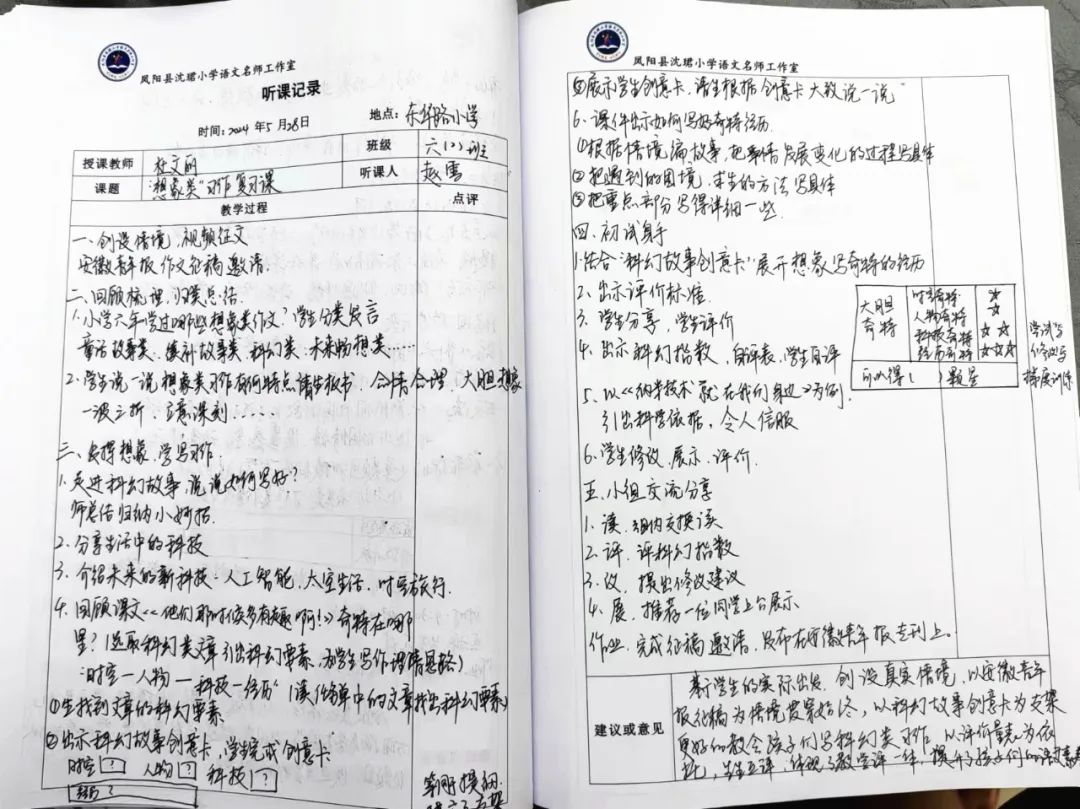 凤阳县沈珺小学语文名师工作室
听课记录
时间：2024年5月28日 地点：东华路小学
授课教师 杜文丽 班级 六(2)班
课题 "想象类"习作复习课 听课人 赵雪
教学过程 点评
一、创设情境，视频征文
安徽青年报作文征稿邀请.
二、回顾梳理，归类总结.
1.小学六年学过哪些想象类作文？学生分类发言
童话故事类、续补故事类、科幻类、未来畅想类……
2.学生说一说想象类习作有何特点请生板书 合情合理，大胆想象
一波三折、立意深刻……
三、发挥想象，学写习作.
1.走进科幻故事，说说如何写好？
师总结归纳小妙招.
2.分享生活中的科技
3.介绍未来的新科技：人工智能、太空生活、时空旅行.
4.回顾课文《他们那时候多有趣啊！》奇特在哪
里？（选取科幻类文章引出科幻要素，为学生写作理清思路）
时空—人物—科技—经历"（读作业单中的文章找出科幻要素）
①生找到文章的科幻要素
②出示科幻故事创意卡，学生完成创意卡
时空？ 人物？ 科技？
经历？
凤阳县沈珺小学语文名师工作室
③展示学生创意卡，请生根据创意卡大致说一说
6.课件出示如何写好奇特经历.
①根据情境编故事，把事情发展变化的过程写具体
②把遇到的困境、求生的方法写具体
③把重点部分写得详细一些.
四、初试身手
1.结合"科幻故事创意卡"展开想象写奇特的经历
2.出示评价标准.
3.学生分享，学生评价
4.出示科幻指数，自评表，学生自评
大胆奇特 时空奇特 人物奇特 科技奇特 经历奇特 ☆ ☆ ☆☆ ☆☆☆
可以得（ ）颗星
尝试写
修改写
梯度训练
5.以《纳米技术就在我们身边》为例.
引出科学依据，令人信服
6.学生修改、展示、评价.
五、小组交流分享
1.读.组内交换读
2.评.评科幻指数
3.议.提出修改建议
4.展.推荐一位同学上台展示
作业：完成征稿邀请，发布在安徽青年报专刊上。
建议或意见
基于学生的实际出发，创设真实情境，以安徽青年
报征稿为情境贯累始终，以科幻故事创意卡为支架
更好的教会孩子们写科幻类习作，以评价量表为依
托，生生互评，体现了教学评一体，提升了孩子们的语文素养